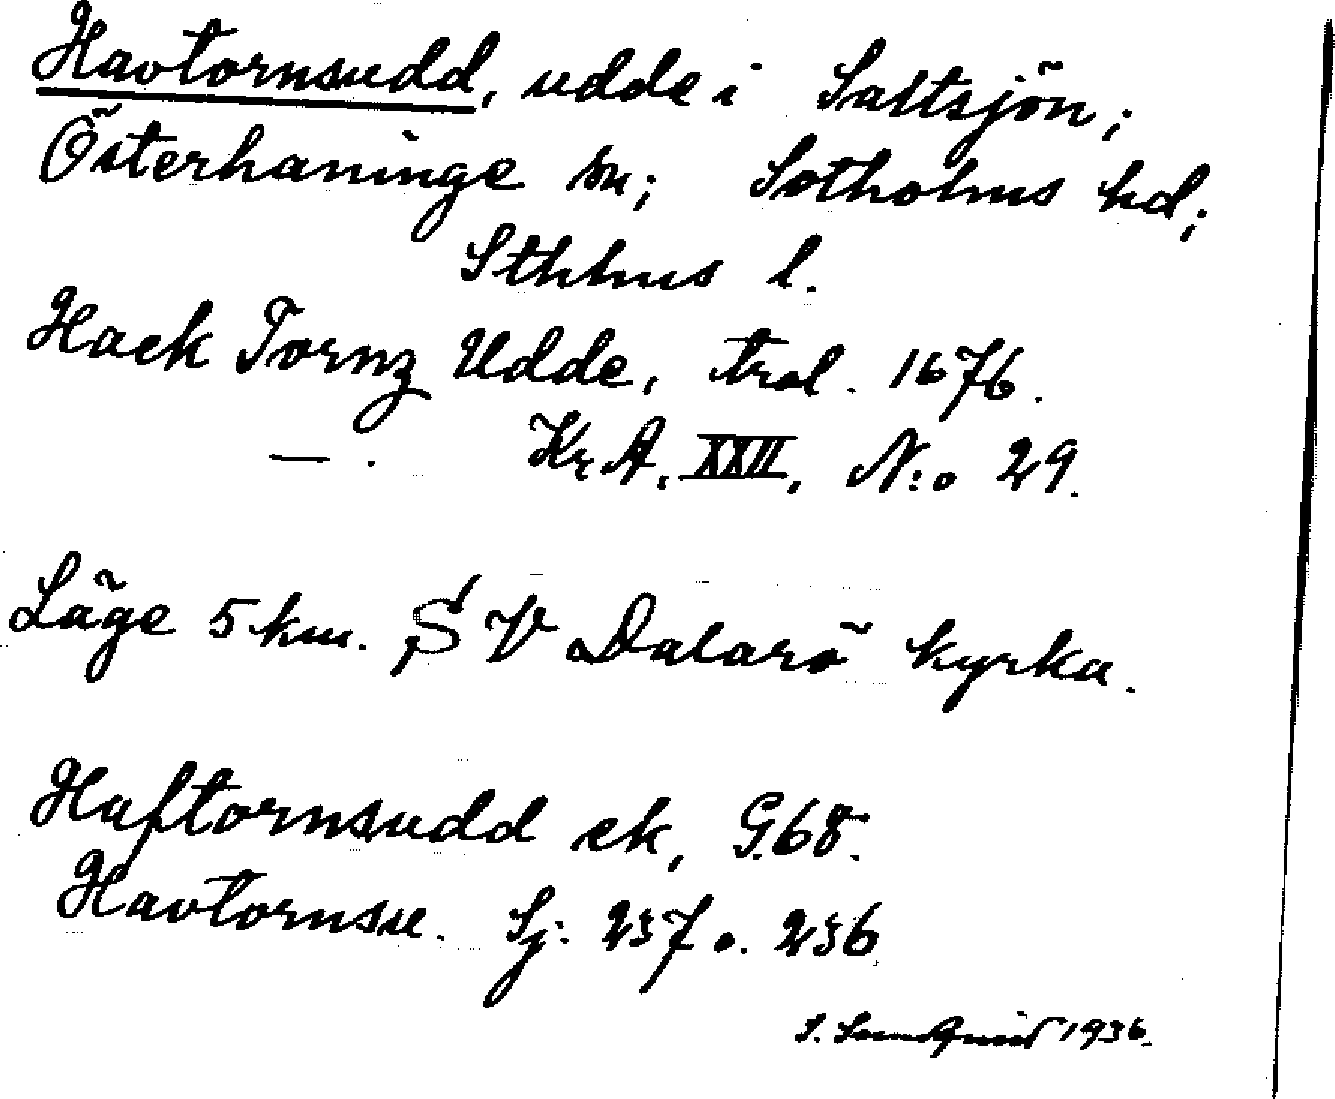 Havtornsudd, udde i Saltsjön;
Österhaninge sn; Sotholms hd;
Sthlms l.
Hack Tornz Udde, trol. 1676.
— . Kr. A. XXII, N:o 29.
Läge 5 km. SV Dalarö kyrka.
Haftornsudd ek, G.68.
Havtornsu. Sj: 257 o. 256
S. 1936.